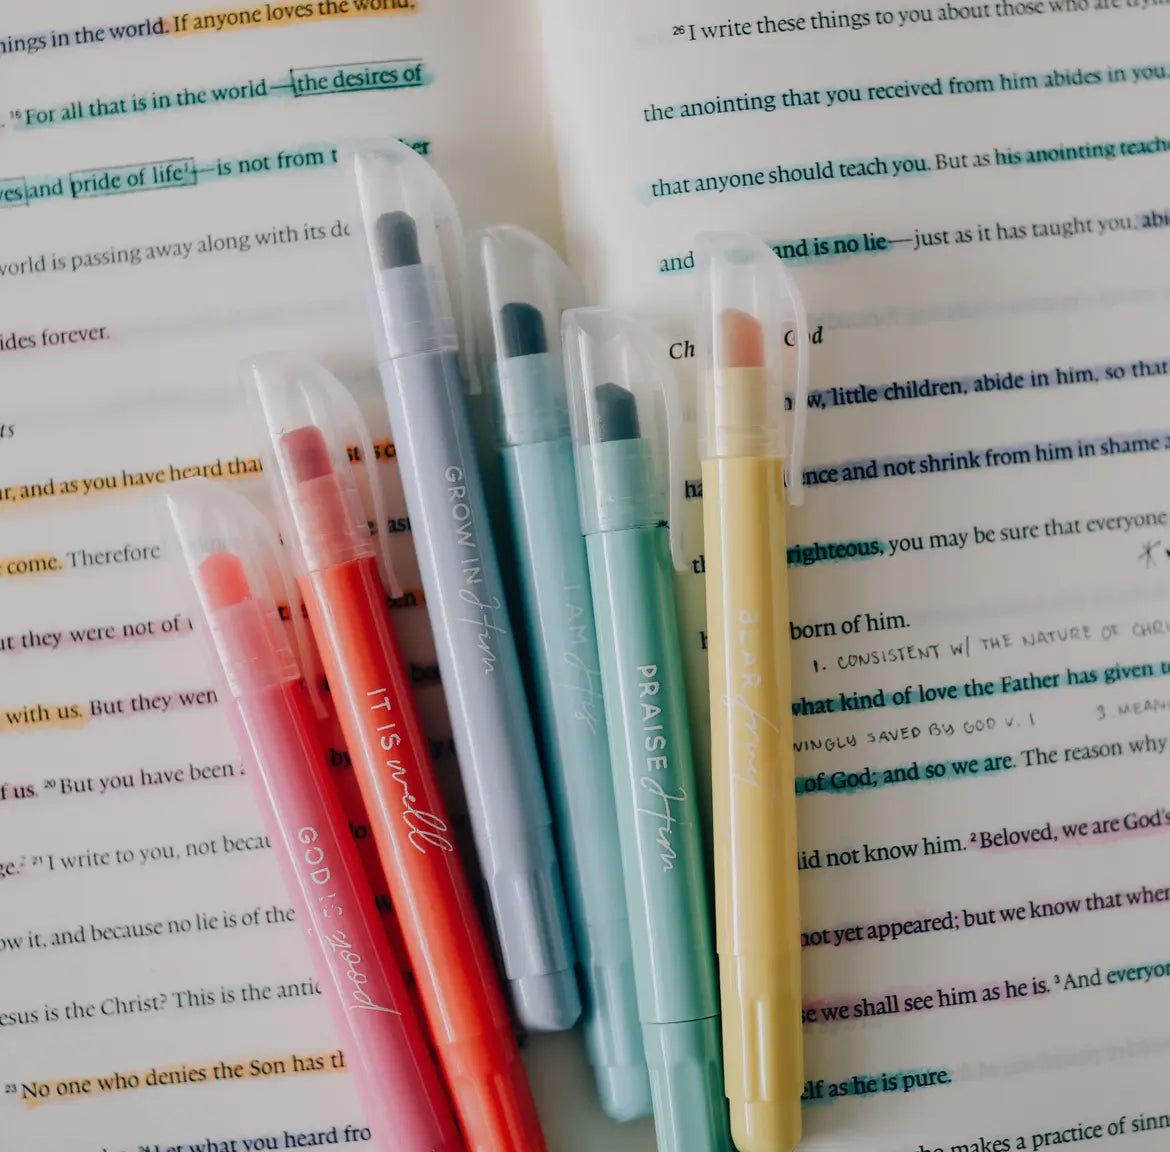 things in the world. If anyone loves the world,
. 16 For all that is in the world—the desires of
yes and pride of life1—is not from t er
world is passing away along with its de
ides forever.
ts
r, and as you have heard that
come. Therefore
ut they were not of
with us. But they wen
f us. 20 But you have been
ge.2 21 I write to you, not becau
ow it, and because no lie is of the
esus is the Christ? This is the antic
23 No one who denies the Son has th
24 Let what you heard fro
26 I write these things to you about those who are trying
the anointing that you received from him abides in you,
that anyone should teach you. But as his anointing teache
and and is no lie—just as it has taught you, abi
Ch God
now, little children, abide in him, so that
ha ence and not shrink from him in shame a
th righteous, you may be sure that everyone
born of him.
1. CONSISTENT W/ THE NATURE OF CHRI
what kind of love the Father has given t
VINGLY SAVED BY GOD V. 1 3. MEAN
of God; and so we are. The reason why
did not know him. 2 Beloved, we are God's
not yet appeared; but we know that when
se we shall see him as he is. 3 And everyon
elf as he is pure.
ho makes a practice of sinn
GOD IS good
IT IS well
GROW IN Him
I AM His
PRAISE Him
BEAR fruit